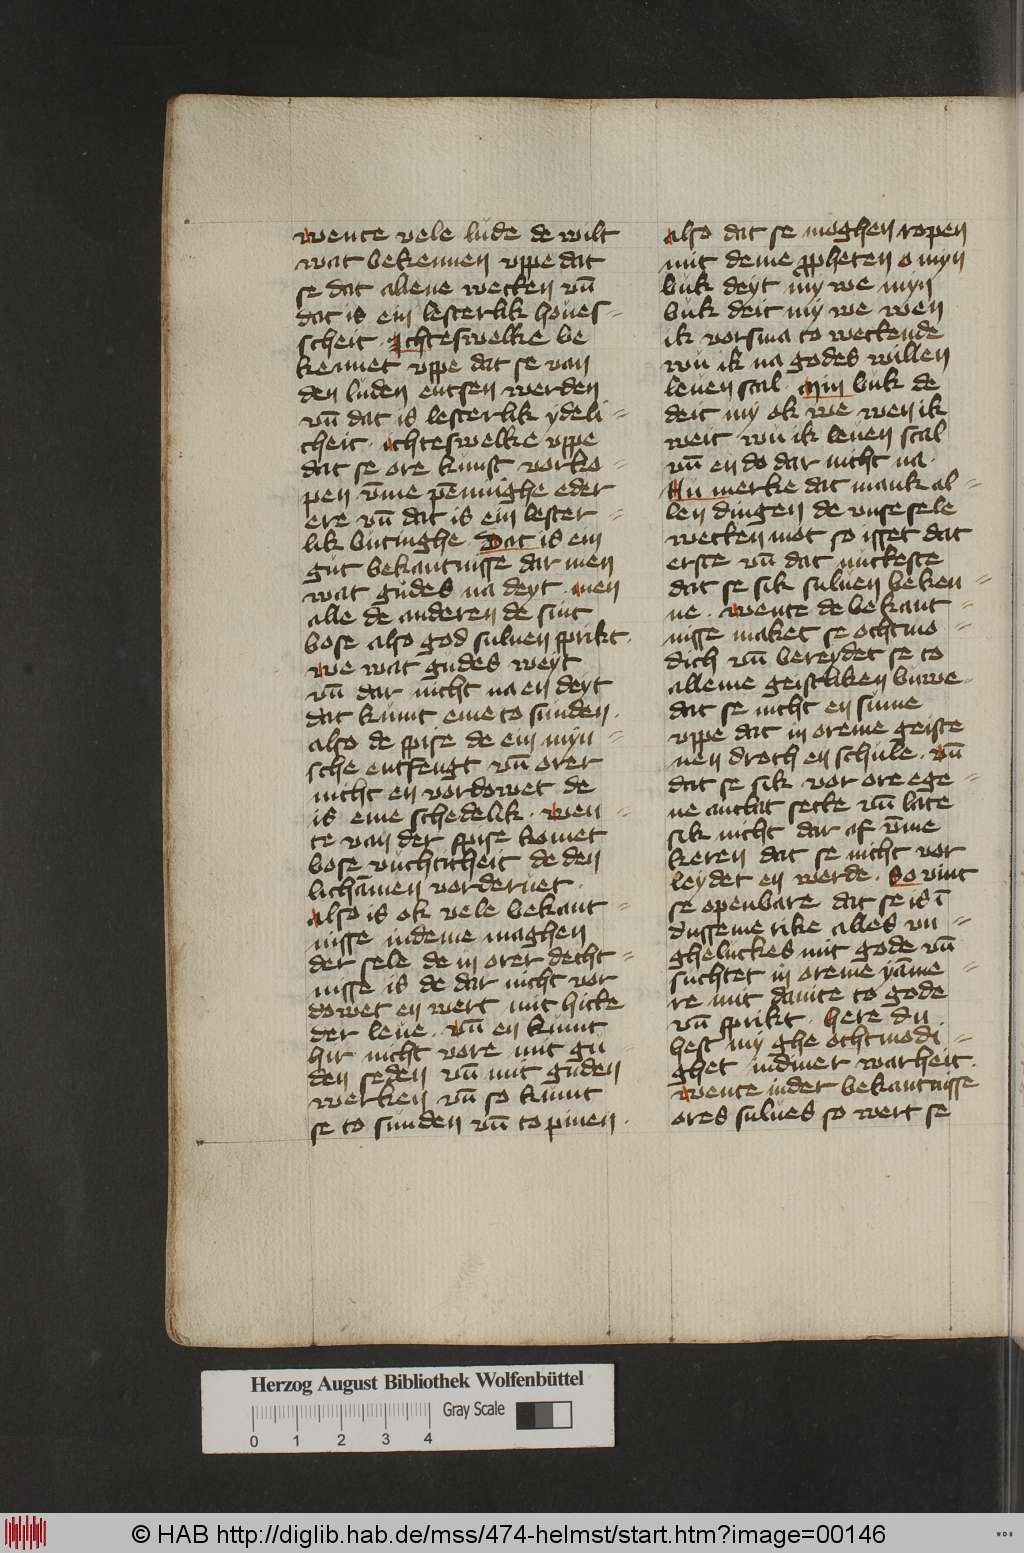 wente vele lude de wilt
wat bekennen vppe dat
se dat allene wecken vn̄
dat is ein lesterlik houes=
scheit . Ichteswelke be
kennet vppe dat se van
den luden entfen werden
vn̄ dat is lesterlik ydeli=
cheit . ichteswelke vppe
dat se ore kunst vorko=
pen v̄me pēnnighe eder
ere vn̄ dat is ein lester=
lik butinghe . Dat is ein
gut bekantnisse dar men
wat gudes na deyt . men
alle de anderen de sint
bose also god suluen sprikt .
we wat gudes weyt
vn̄ dar nicht na en deyt
dat kumt eme to sunden .
also de spise de ein myn=
sche entfengt vn̄ orer
nicht en vordowet de
is eme schedelik . wen=
te van der spise komet
bose vuchticheit de den
lichāmen vorderuet .
Also is ok vele bekant=
nisse indeme maghen
der sele de in orer decht=
nisse is de dar nicht vor
dowet en wert mit hicke
der leue . vn̄ en kumt
hir nicht vore mit gu=
den seden vn̄ mit guden
werken vn̄ so kumt
se to sunden vn̄ to pinen .
also dat se moghen ropen
mit deme ppheten o myn
buk deyt my we myn
buk deit my we wen
ik vorsma to weckende
wu ik na godes willen
leuen scal . Min buk de
deit my ok we wen ik
weit wu ik leuen scal
vn̄ en do dar nicht na .
Nu merke dat mank al=
len dingen de vnse sele
wecken mot so isset dat
erste vn̄ dat nutteste
dat se sik suluen beken=
ne . wente de bekant=
nisse maket se ochtmo=
dich vn̄ bereydet se to
alleme geistliken buwe .
dat se nicht en sume
vppe dat in oreme geiste
nen droch en schule . vn̄
dat se sik vor ore ege=
ne antlat sette vn̄ late
sik nicht dar af v̄me
keren dat se nicht vor
leydet en werde . So vint
se openbare dat se is ī
dusseme rike alles vn=
gheluckes mit gode vn̄
suchtet in oreme yāme=
re mit dauite to gode
vn̄ sprikt . here du
hest my ghe ochtmodi=
ghet indiner warheit .
wente inder bekantnisse
ores sulues so wert se
Herzog August Bibliothek Wolfenbüttel
Gray Scale
0 1 2 3 4
© HAB http://diglib.hab.de/mss/474-helmst/start.htm?image=00146